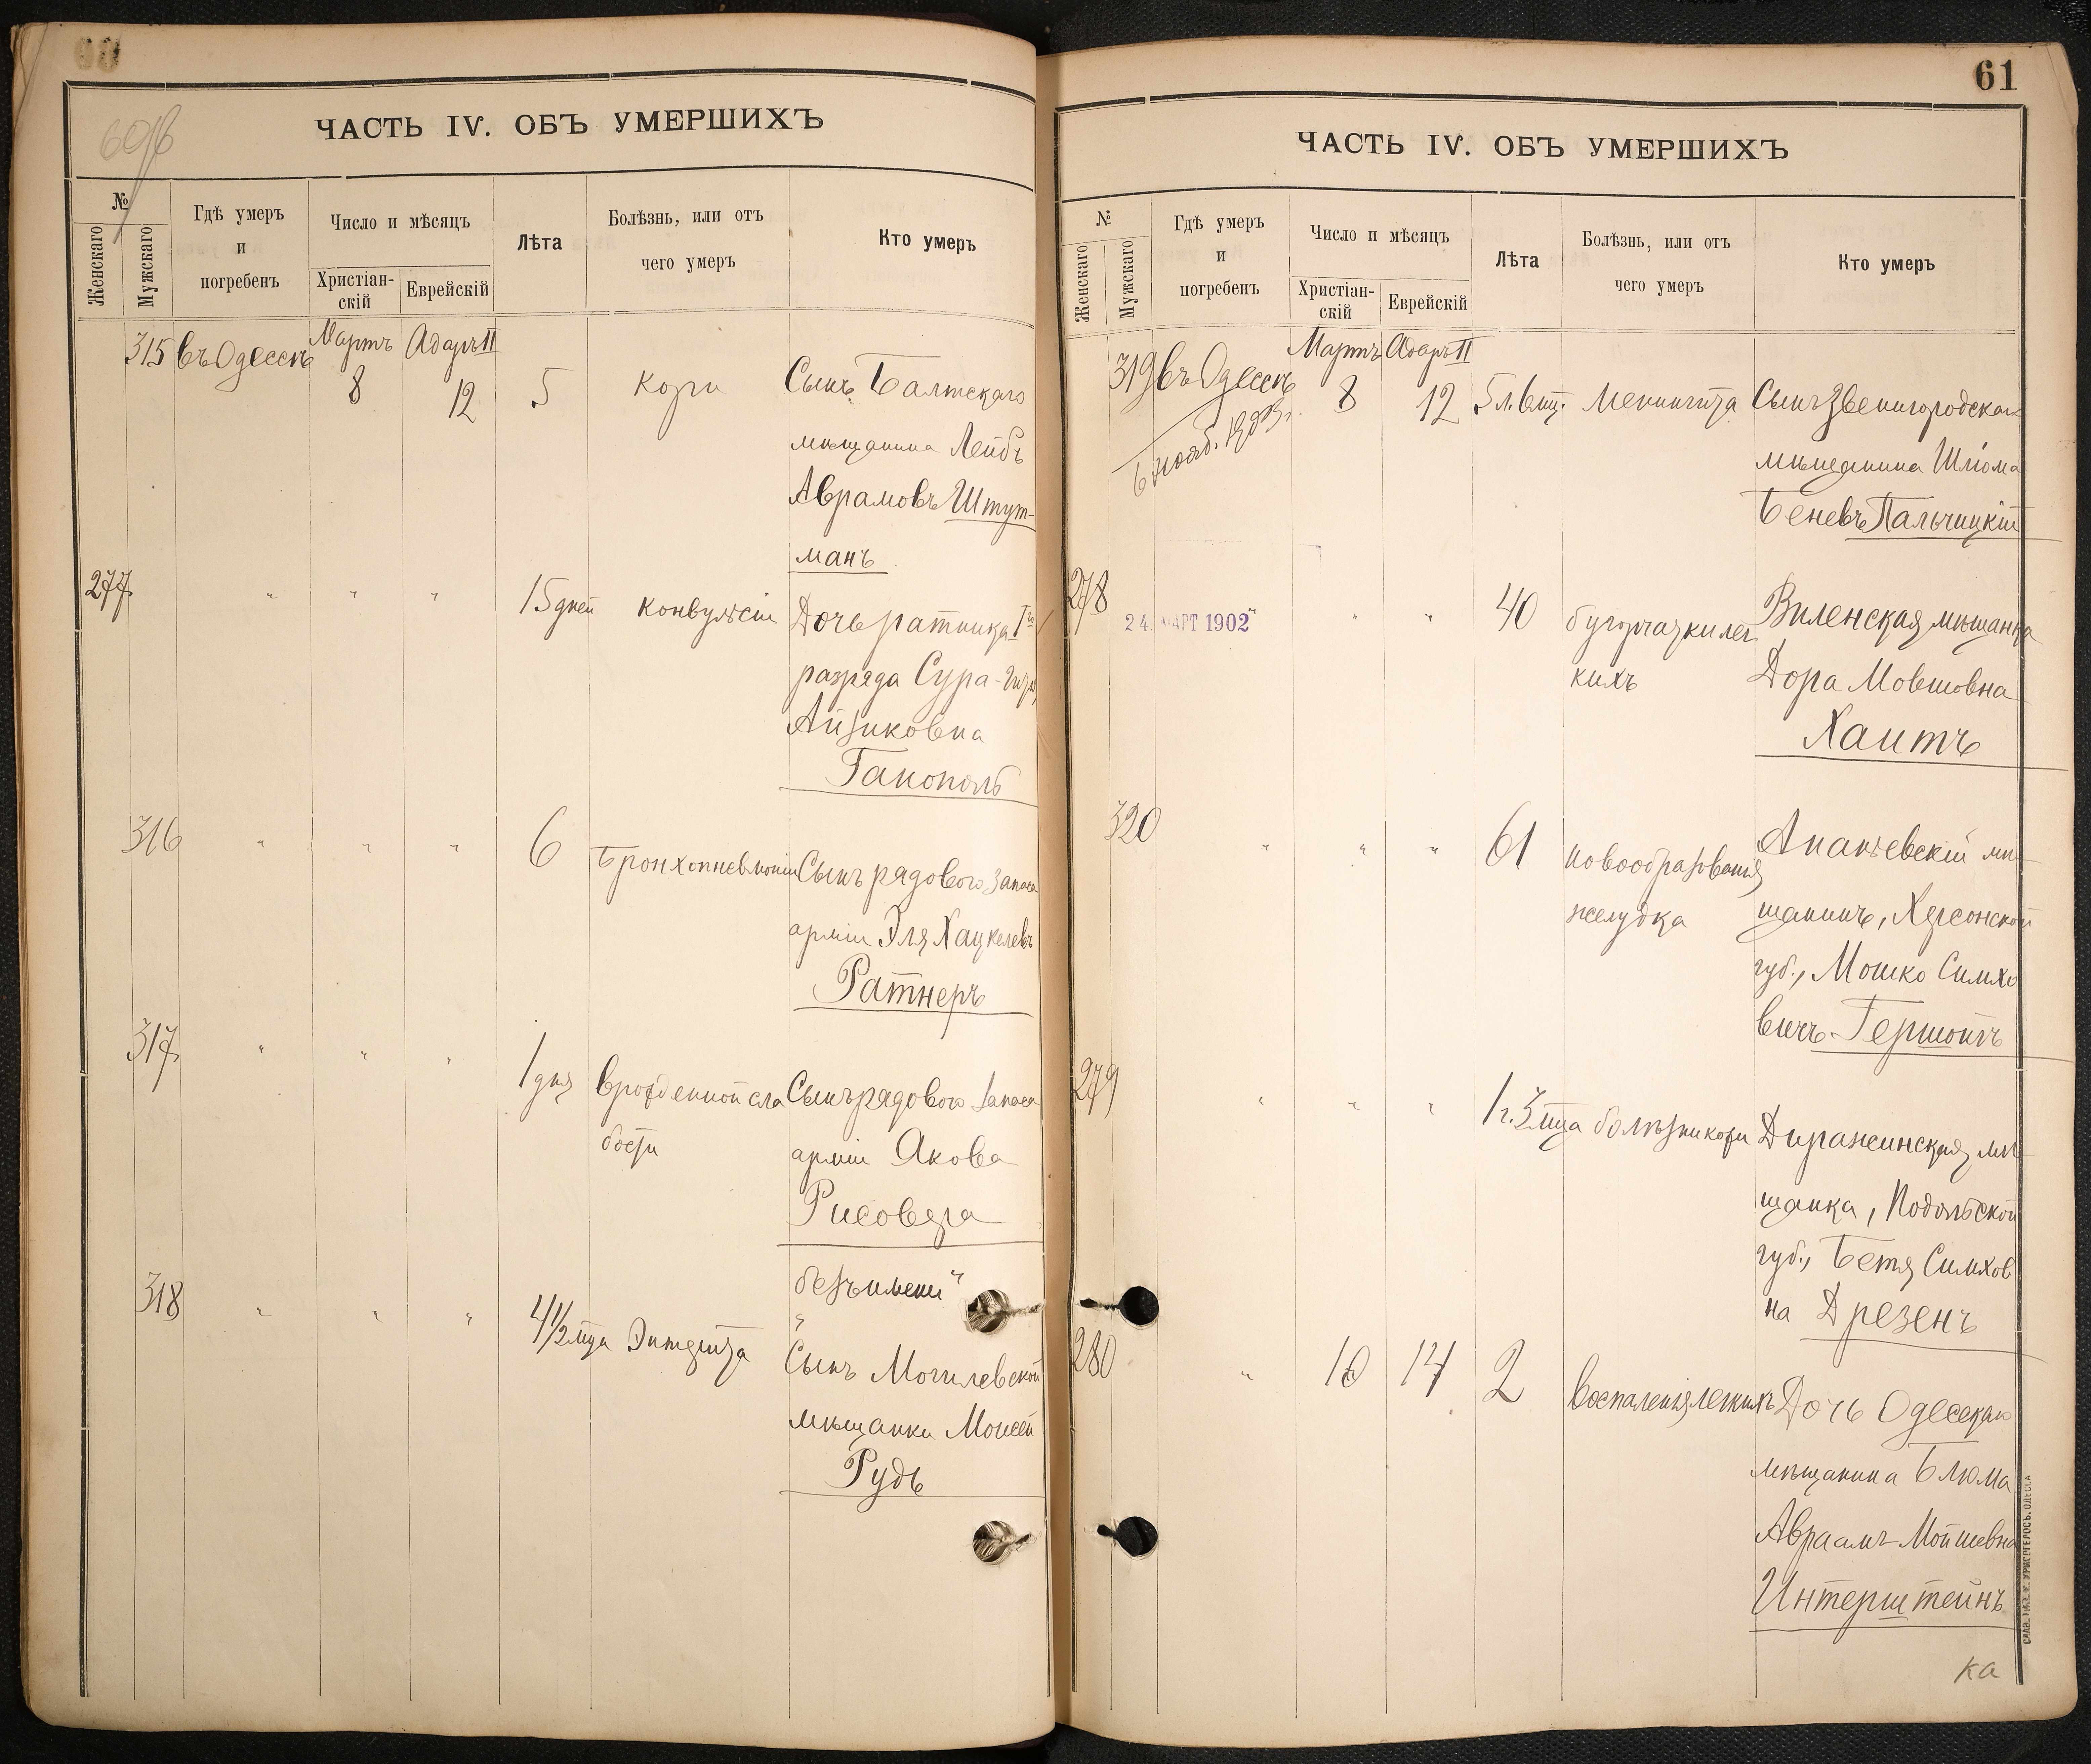 60об
ЧАСТЬ IV. ОБЪ УМЕРШИХЪ
№
Женскаго
Мужскаго
Гдѣ умеръ
и
погребенъ
Число и мѣсяцъ
Христіан-
скій
Еврейскій
Лѣта
Болѣзнь, или отъ
чего умеръ
Кто умеръ
315 въ Одессѣ Мартъ Адаръ II
8 12 5 кори Сынъ Балтскаго
мѣщанина Лейбъ
Аврамовъ Штут-
манъ
277 " " " 15 дней конвульсіи Дочь ратника I го
разряда Сура-
Айзиковна
Ганополь
316 " " " 6 Бронхопневмоніи Сынъ рядового запаса
арміи Эля Хацкелевъ
Ратнеръ
317 " " " 1 дня врожденной сла
бости Сынъ рядового запаса
арміи Якова
Рисовера
безъ имени"
318 " " " 4 1/2 мца Энтерита Сынъ Могилевской
мѣщанки Моисей
Рудь
61
ЧАСТЬ IV. ОБЪ УМЕРШИХЪ
№
Женскаго
Мужскаго
Гдѣ умеръ
и
погребенъ
Число и мѣсяцъ
Христіан-
скій
Еврейскій
Лѣта
Болѣзнь, или отъ
чего умеръ
Кто умеръ
319 въ Одессѣ Мартъ Адаръ II
8 12 5 л. 6 мц. Менингита Сынъ Звенигородскаго
мѣщанина Шлома
Беневъ Пальчицкій
6 нояб. 1903 г.
278 24 МАРТ 1902 " " 40 бугорчатки лег
кихъ Виленская мѣщанка
Дора Мовшовна
Хаитъ
320 " " " 61 новообразованія
желудка Ананьевскій мѣ
щанинъ, Херсонской
губ., Мошко Симхо
вичъ Гершойгъ
279 " " " 1 г. 3 мца болѣзни кори Диражинская мѣ
щанка, Подольской
губ., Бетя Симхов
на Дрезенъ
280 " 10 14 2 воспаленія легкихъ Дочь Одесскаго
мѣщанина Блюма
Авраамъ-Мойшевна
Интерштейнъ
ка